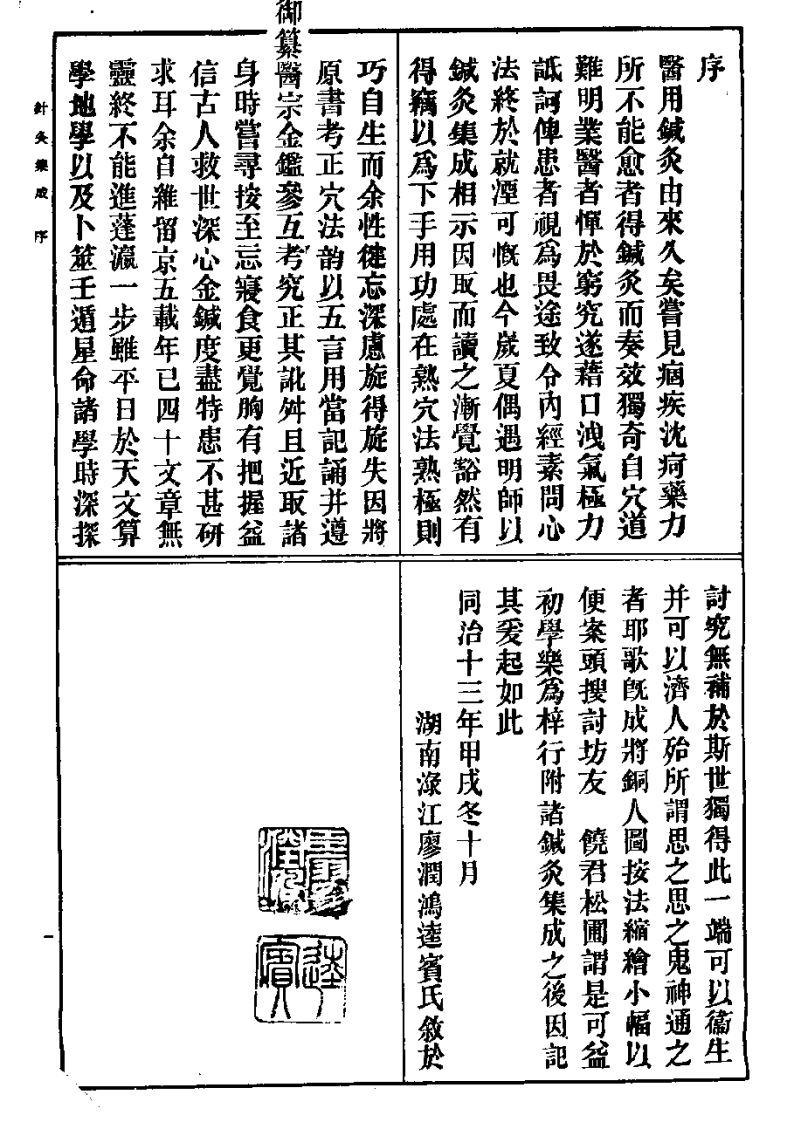 序
醫用鍼灸由來久矣嘗見痼疾沈疴藥力
所不能愈者得鍼灸而奏效獨奇自穴道
難明業醫者憚於窮究遂藉口洩氣極力
詆訶俾患者視爲畏途致令內經素問心
法終於就湮可慨也今歲夏偶遇明師以
鍼灸集成相示因取而讀之漸覺豁然有
得竊以爲下手用功處在熟穴法熟極則
巧自生而余性健忘深慮旋得旋失因將
原書考正穴法韵以五言用當記誦并遵
御纂醫宗金鑑參互考究正其訛舛且近取諸
身時嘗尋按至忘寢食更覺胸有把握益
信古人救世深心金鍼度盡特患不甚研
求耳余自維留京五載年已四十文章無
靈終不能進蓬瀛一步雖平日於天文算
學地學以及卜筮壬遁星命諸學時深探
針灸集成 序
討究無補於斯世獨得此一端可以衞生
并可以濟人殆所謂思之思之鬼神通之
者耶歌旣成將銅人圖按法縮繪小幅以
便案頭搜討坊友 饒君松圃謂是可益
初學樂爲梓行附諸鍼灸集成之後因記
其爰起如此
同治十三年甲戌冬十月
湖南淥江廖潤鴻逵賓氏敘於
逵賓